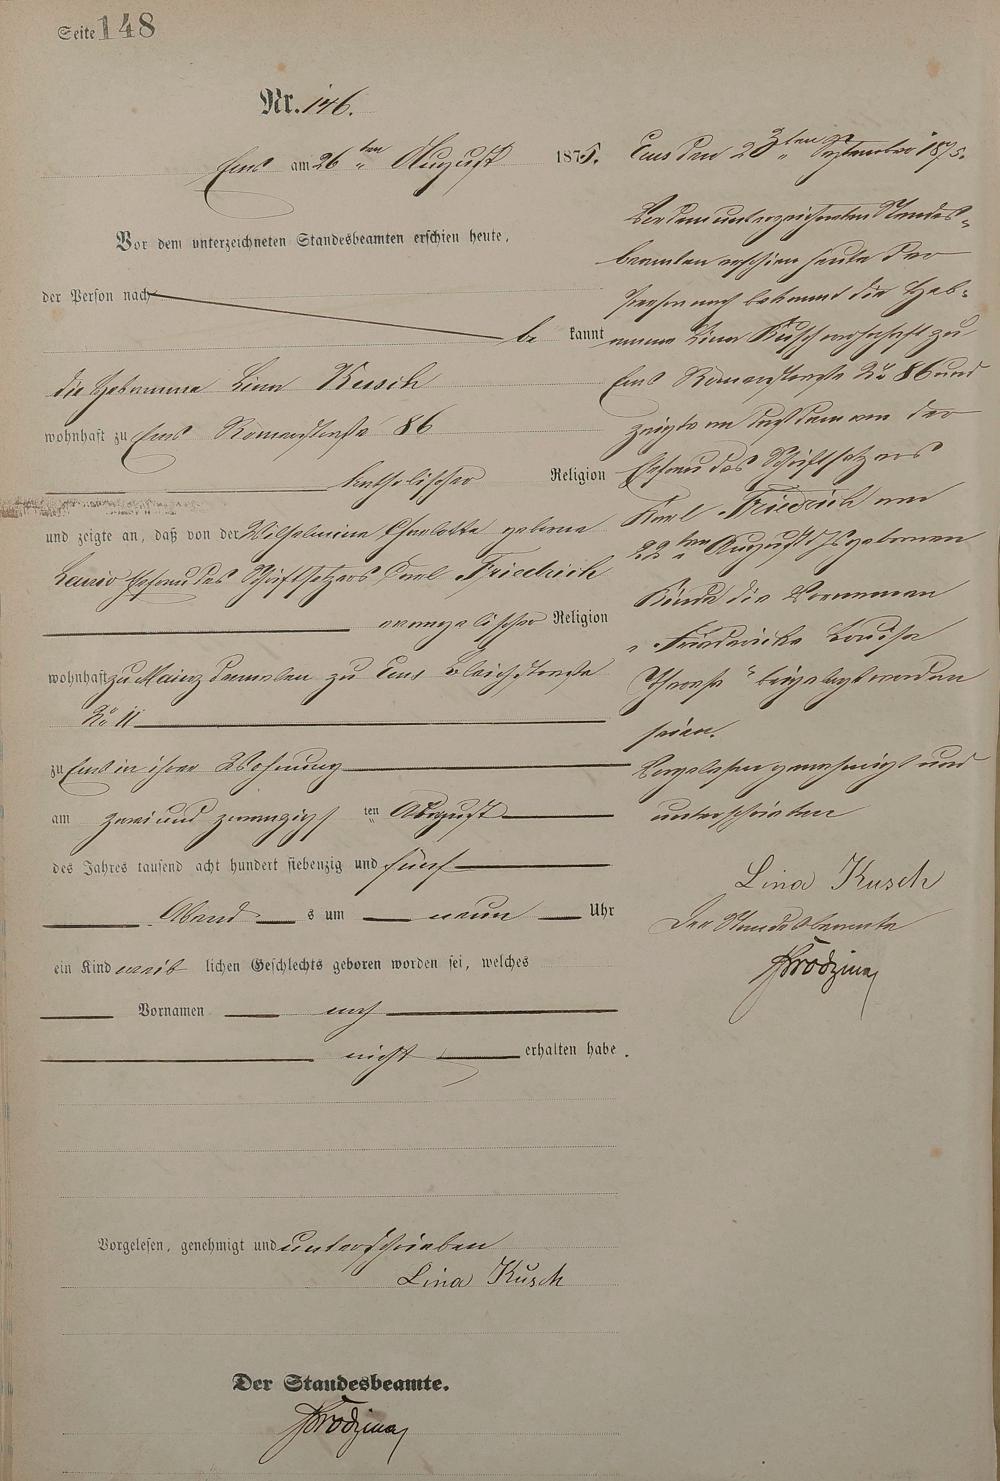 Seite 148
Nr. 146.
Ems am 26ten August 1875.
Vor dem unterzeichneten Standesbeamten erschien heute,
der Person nach
be kannt
die Hebamme Lina Kusch
wohnhaft zu Ems Römerstraße 86
katholischer Religion
und zeigte an, daß von der Wilhelmina Charlotte geborne
Ehefrau des Schriftsetzers Carl Friedrich
evangelischer Religion
wohnhaft zu Mainz zu Ems Bleichstraße
No 11
zu Ems in ihrer Wohnung
am zwei und zwanzigsten August
des Jahres tausend acht hundert siebenzig und fünf
Abend s um neun Uhr
ein Kind weib lichen Geschlechts geboren worden sei, welches
Vornamen noch
nicht erhalten habe.
Vorgelesen, genehmigt und unterschrieben
Lina Kusch
Der Standesbeamte.
Ems den 23ten September 1875.
Vor dem unterzeichneten Standes-
beamten erschien heute der
Person nach bekannt die Heb-
amme Lina Kusch wohnhaft zu
Ems Römerstraße No 86 und
zeigte an daß dem von der
Ehefrau des Schriftsetzers
Karl Friedrich am
22ten August geborenen
Kinde die Vornamen
„Friedericke Louise
" beigelegt worden
seien.
Vorgelesen genehmigt und
unterschrieben
Lina Kusch
Der Standesbeamte